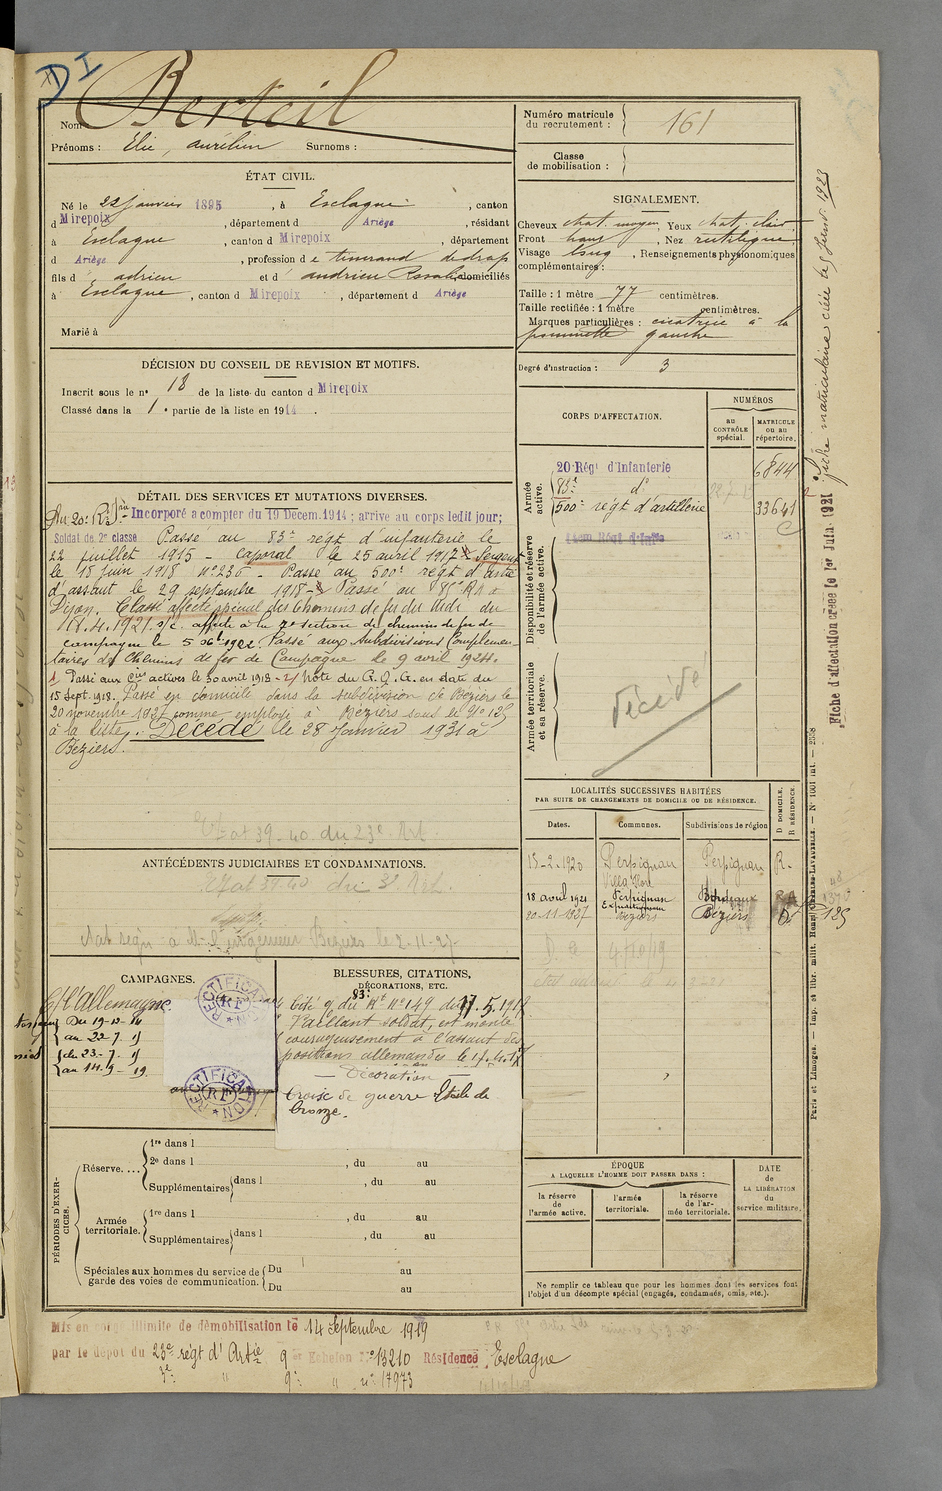 DI
Berteil
Nom
Prénoms : Elie, Aurélien Surnoms :
ÉTAT CIVIL.
Né le 22 janvier 1895, à Esclagne, canton
d Mirepoix, département d Ariège, résidant
à Esclagne, canton d Mirepoix, département
d Ariège, profession de tisserand de drap
fils d adrien et d andrieu Rosalie domiciliés
à Esclagne, canton d Mirepoix, département d Ariège
Marié à
DÉCISION DU CONSEIL DE REVISION ET MOTIFS.
Inscrit sous le nº 18 de la liste du canton d Mirepoix
Classé dans la 1e partie de la liste en 1914.
DÉTAIL DES SERVICES ET MUTATIONS DIVERSES.
Au 20e R. d'I. Incorporé a compter du 19 Decem. 1914; arrive au corps ledit jour;
Soldat de 2e classe Passé au 83e régt d'infanterie le
22 juillet 1915 - Caporal le 25 avril 1917 - Sergent
le 18 juin 1918 Nº 236 - Passé au 500e régt d'artie
d'assaut le 29 septembre 1918 - Passé au RA à
Dijon. Classé affecté spécial des Chemins de fer du Midi du
18.4.1921. affecté à la 7e section de chemins de fer de
campagne le 5 1922. Passé aux Subdivisions Complémen-
taires de Chemins de fer de Campagne le 9 avril 1924.
1 Passé aux actives le 30 avril 1918 - 2 Note du G.Q.G. en date du
15 Sept. 1918. Passé en domicile dans la subdivision de Béziers le
20 novembre 1927 comme employé à Béziers sous le Nº 125
à la liste. Décédé le 28 Janvier 1931 à
Béziers.
Etat 39-40 du 23e Art
ANTÉCÉDENTS JUDICIAIRES ET CONDAMNATIONS.
Etat 39-40 du 3e Art.
Béziers le 2-11-27
CAMPAGNES.
C/ l'Allemagne
Du 19-12-14
au 22-7-15
du 23-7-15
au 14-9-19
RECTIFICATION
RF
RECTIFICATION
RF
BLESSURES, CITATIONS,
DÉCORATIONS, ETC.
Cité O. du 83e Rt Nº 149 du 17.5.1917
Vaillant soldat, est monté
courageusement à l'assaut des
positions allemandes le 17.4.17
— Décoration —
Croix de guerre Etoile de
bronze.
PÉRIODES D'EXER-
CICES.
Réserve....
1re dans l
2e dans l , du au
Supplémentaires dans l , du au
Armée
territoriale.
1re dans l , du au
Supplémentaires dans l , du au
Spéciales aux hommes du service de
garde des voies de communication.
Du au
Du au
Mis en congé illimité de démobilisation le 14 Septembre 1919
par le dépot du 23e régt d'Artie 9e Echelon Nº 13210 Résidence Esclagne
3e " 9e " nº 17973
Numéro matricule
du recrutement : 161
Classe
de mobilisation :
SIGNALEMENT.
Cheveux chat. moyen, Yeux chat. clair
Front haut, Nez rectiligne
Visage long, Renseignements physionomiques
complémentaires :
Taille : 1 mètre 77 centimètres.
Taille rectifiée : 1 mètre centimètres.
Marques particulières : cicatrice à la
pommette gauche
Degré d'instruction : 3
CORPS D'AFFECTATION.
NUMÉROS
au
CONTRÔLE
spécial.
MATRICULE
ou au
répertoire.
Armée
active.
20e Régt d'Infanterie 6844
83e dº
500e régt d'artillerie 33641
Disponibilité et réserve
de l'armée active.
Régt d'Infie
Armée territoriale
et sa réserve.
Décédé
LOCALITÉS SUCCESSIVES HABITÉES
PAR SUITE DE CHANGEMENTS DE DOMICILE OU DE RÉSIDENCE.
Dates. Communes. Subdivisions de région
D DOMICILE.
R RÉSIDENCE.
15-2-1920 Perpignan Perpignan R.
18 avril 1921 Perpignan Bordeaux R
20-11-1927 Béziers Béziers D
125
ÉPOQUE
A LAQUELLE L'HOMME DOIT PASSER DANS :
la réserve
de
l'armée active.
l'armée
territoriale.
la réserve
de l'ar-
mée territoriale.
DATE
de
LA LIBÉRATION
du
service militaire.
Ne remplir ce tableau que pour les hommes dont les services font
l'objet d'un décompte spécial (engagés, condamnés, omis, etc.).
Fiche matriculaire créée le 25 févr. 1923
Fiche d'affectation créée le 1er Juin 1921
Paris et Limoges. — Imp. et libr. milit. Henri CHARLES-LAVAUZELLE. — Nº 1601 int. — 2558